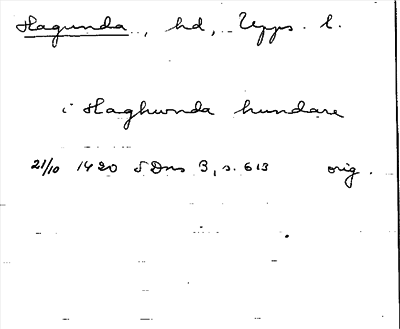 Hagunda, hd, Upps. l.
i Haghwnda hundare
21/10 1420 SDns 3, s. 613 orig.